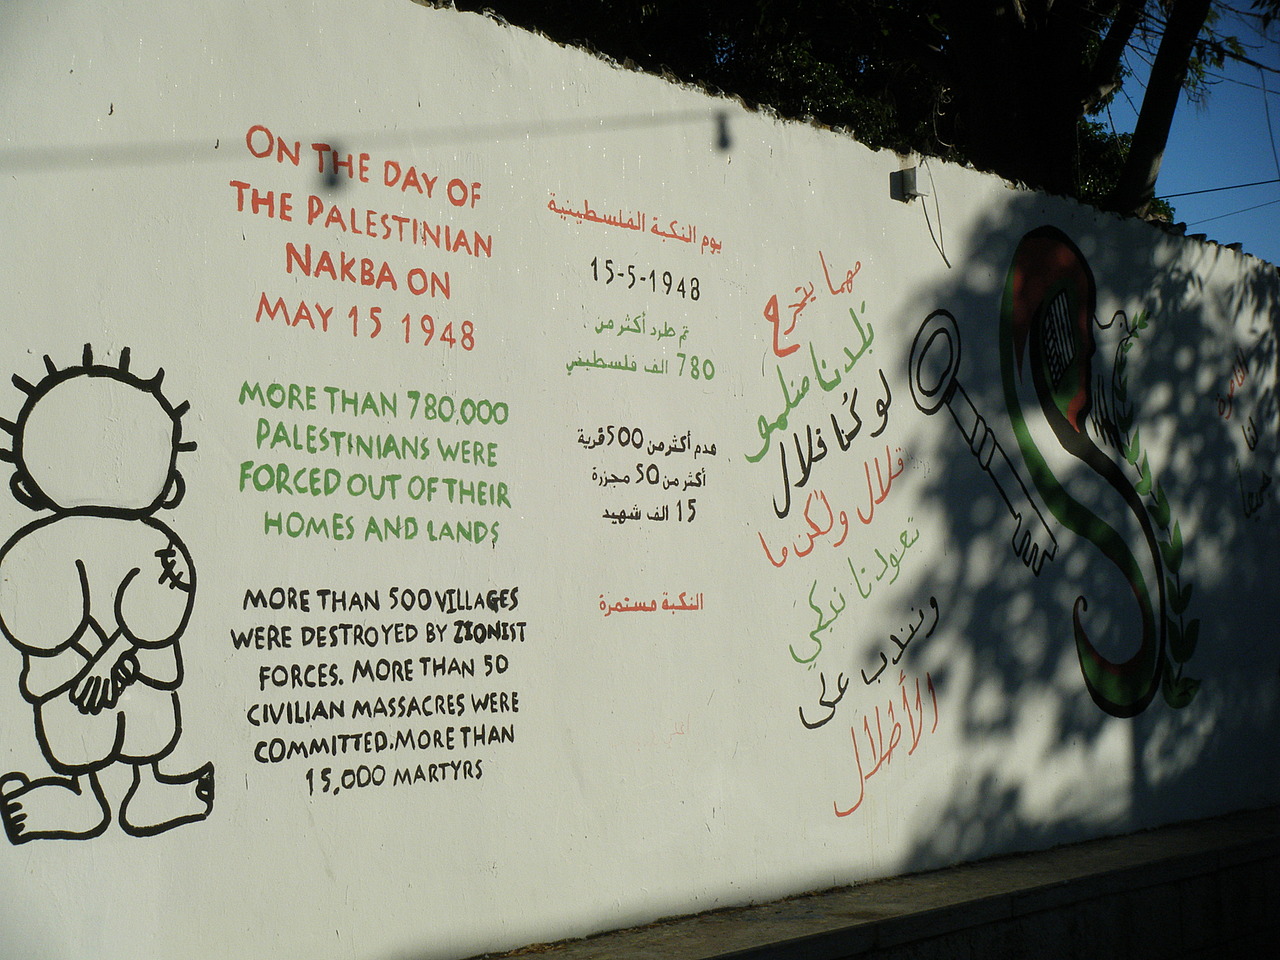 ON THE DAY OF
THE PALESTINIAN
NAKBA ON
MAY 15 1948
MORE THAN 780,000
PALESTINIANS WERE
FORCED OUT OF THEIR
HOMES AND LANDS
MORE THAN 500 VILLAGES
WERE DESTROYED BY ZIONIST
FORCES. MORE THAN 50
CIVILIAN MASSACRES WERE
COMMITTED. MORE THAN
15,000 MARTYRS
يوم النكبة الفلسطينية
15-5-1948
تم طرد أكثر من
780 الف فلسطيني
هدم أكثر من 500 قرية
أكثر من 50 مجزرة
15 الف شهيد
النكبة مستمرة
مهما يتجرح
بلدنا منلمو
لو كنا قلال
قلال ولكن ما
تعودنا نبكي
ونندب على
الأطلال
القاهرة
لنا
جميعاً